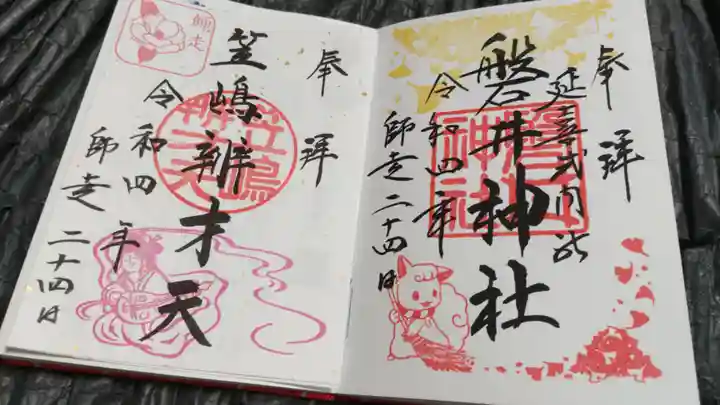 奉拝
延喜式内社
磐井神社
令和四年
師走二十四日
磐井神社
奉拝
笠嶋辨才天
令和四年
師走二十四日
師走
笠嶋辨才天